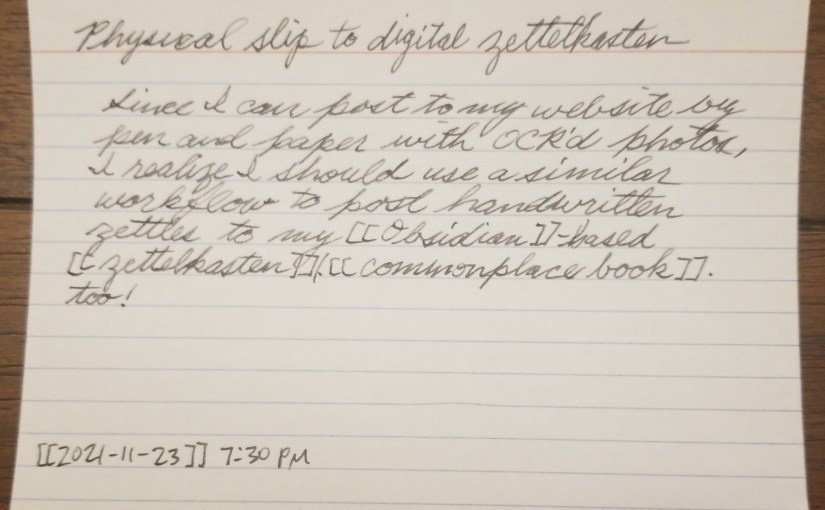 Physical slip to digital zettelkasten
Since I can post to my website by
pen and paper with OCR'd photos,
I realize I should use a similar
workflow to post handwritten
zettles to my [[Obsidian]]-based
[[zettelkasten]]/[[commonplace book]].
too!
[[2021-11-23]] 7:30 PM